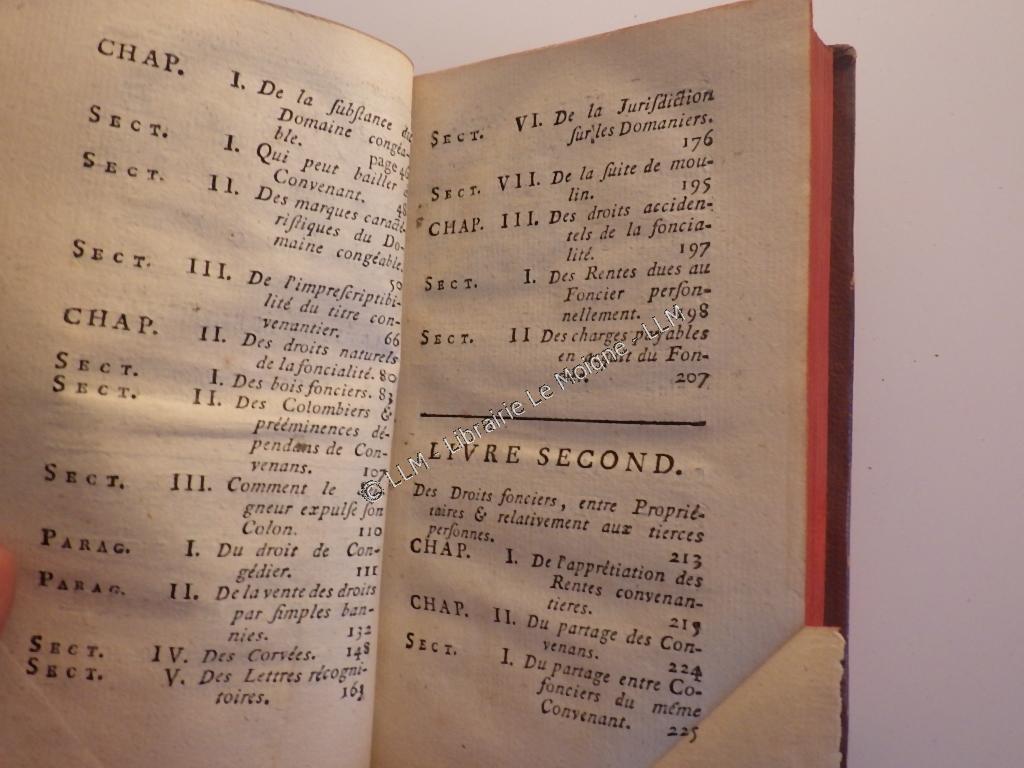 CHAP. I. De la ſubſtance du
Domaine congéa-
ble. page 46
SECT. I. Qui peut bailler à
Convenant. 48
SECT. II. Des marques caracté-
riſtiques du Do-
maine congéable.
50
SECT. III. De l'impreſcriptibi-
lité du titre con-
venantier. 66
CHAP. II. Des droits naturels
de la foncialité. 80
SECT. I. Des bois fonciers. 83
SECT. II. Des Colombiers &
prééminences dé-
pendans de Con-
venans. 107
SECT. III. Comment le
gneur expulſe ſon
Colon. 110
PARAG. I. Du droit de Con-
gédier. 111
PARAG. II. De la vente des droits
par ſimples ban-
nies. 132
SECT. IV. Des Corvées. 148
SECT. V. Des Lettres récogni-
toires. 163
SECT. VI. De la Juriſdiction
ſur les Domaniers.
176
SECT. VII. De la ſuite de mou-
lin. 195
CHAP. III. Des droits acciden-
tels de la foncia-
lité. 197
SECT. I. Des Rentes dues au
Foncier perſon-
nellement. 198
SECT. II Des charges payables
en du Fon-
207
LIVRE SECOND.
Des Droits fonciers, entre Proprié-
taires & relativement aux tierces
perſonnes. 213
CHAP. I. De l'apprétiation des
Rentes convenan-
tieres. 219
CHAP. II. Du partage des Con-
venans. 224
SECT. I. Du partage entre Co-
fonciers du même
Convenant. 225
© LLM - Librairie Le Moigne - LLM